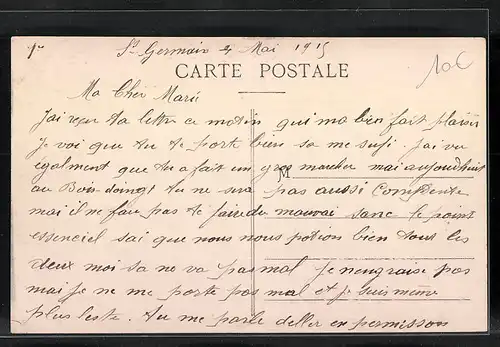 1e St Germain 4 Mai 1915
CARTE POSTALE
10c
Ma Cher Marie
J'ai reçu ta lettre ce matin qui ma bien fait plaisir
je voi que tu te porte bien sa me sufi. J'ai vu
egalment que tu a fait un gros marcher mai aujourdhuit
au Bois doingt tu ne sera pas aussi contente
M
mai il ne fau pas te faire du mauvai sanc le point
essenciel sai que nous nous portion bien tous les
deux moi sa ne va pas mal je nengraise pas
mai je ne me porte pas mal et je suis même
plus leste. tu me parle daller en permisson